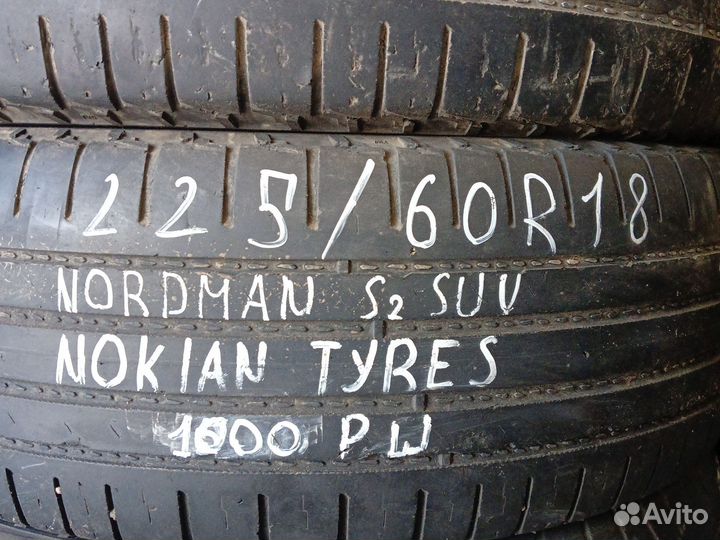 225/60R18
NORDMAN S2 SUV
NOKIAN TYRES
1000 РШ
Avito